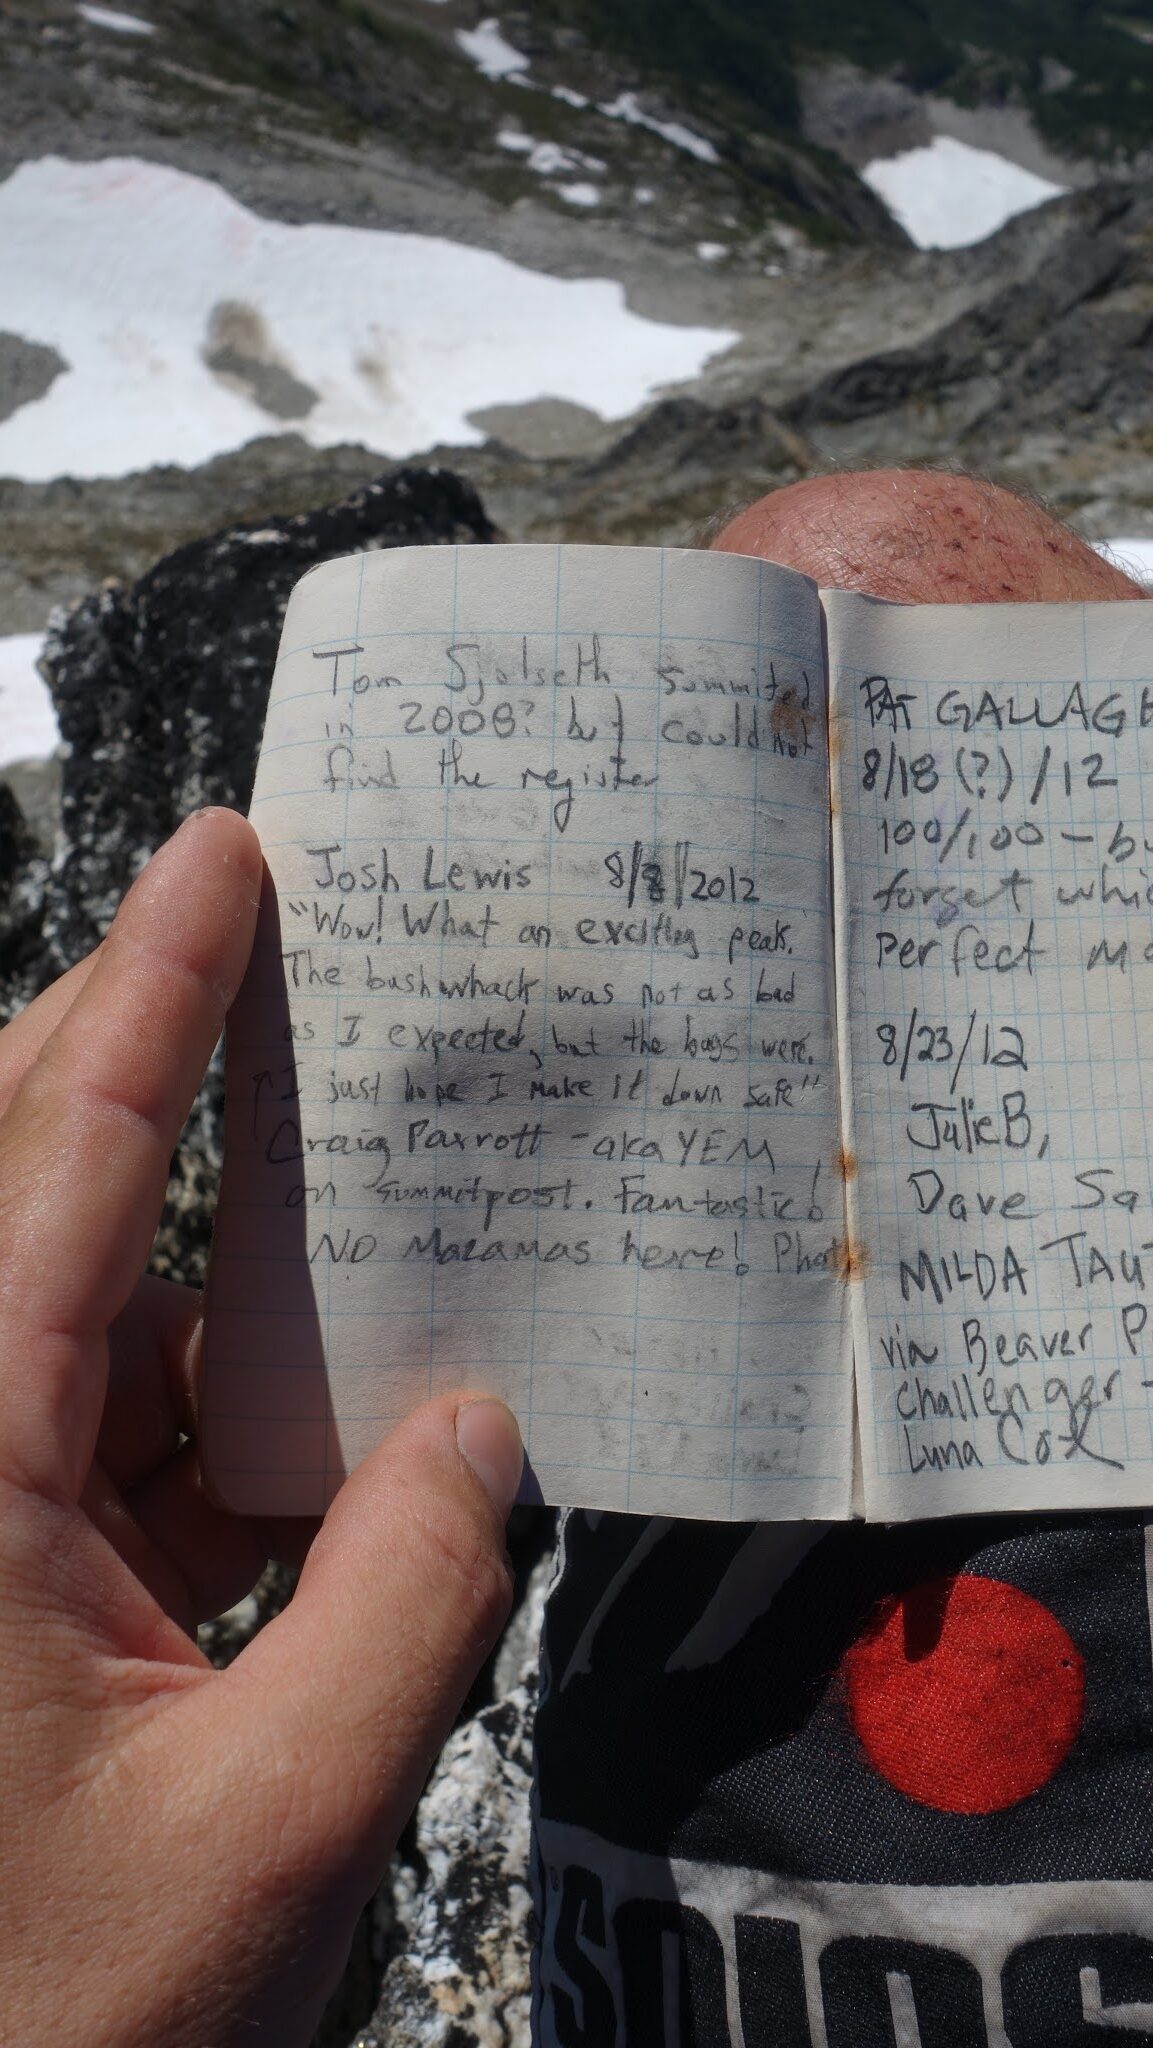 Tom Sjolseth summited
in 2008? but could not
find the register
Josh Lewis 8/8/2012
"Wow! What an exciting peak.
The bushwhack was not as bad
as I expected, but the bugs were.
I just hope I make it down safe"
Craig Parrott - aka YEM
on summitpost. Fantastic!
No Mazamas here! Phat
PAT GALLAGH
8/18(?)/12
100/100 - bu
forget whic
Perfect
8/23/12
Julie B,
Dave Sa
MILDA TAUT
via Beaver P
Challenger -
Luna Col